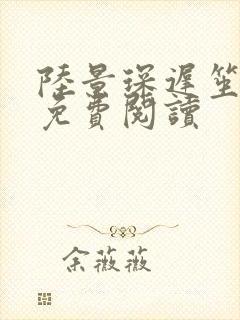 陸景琛遲笙
免費閱讀
余薇薇